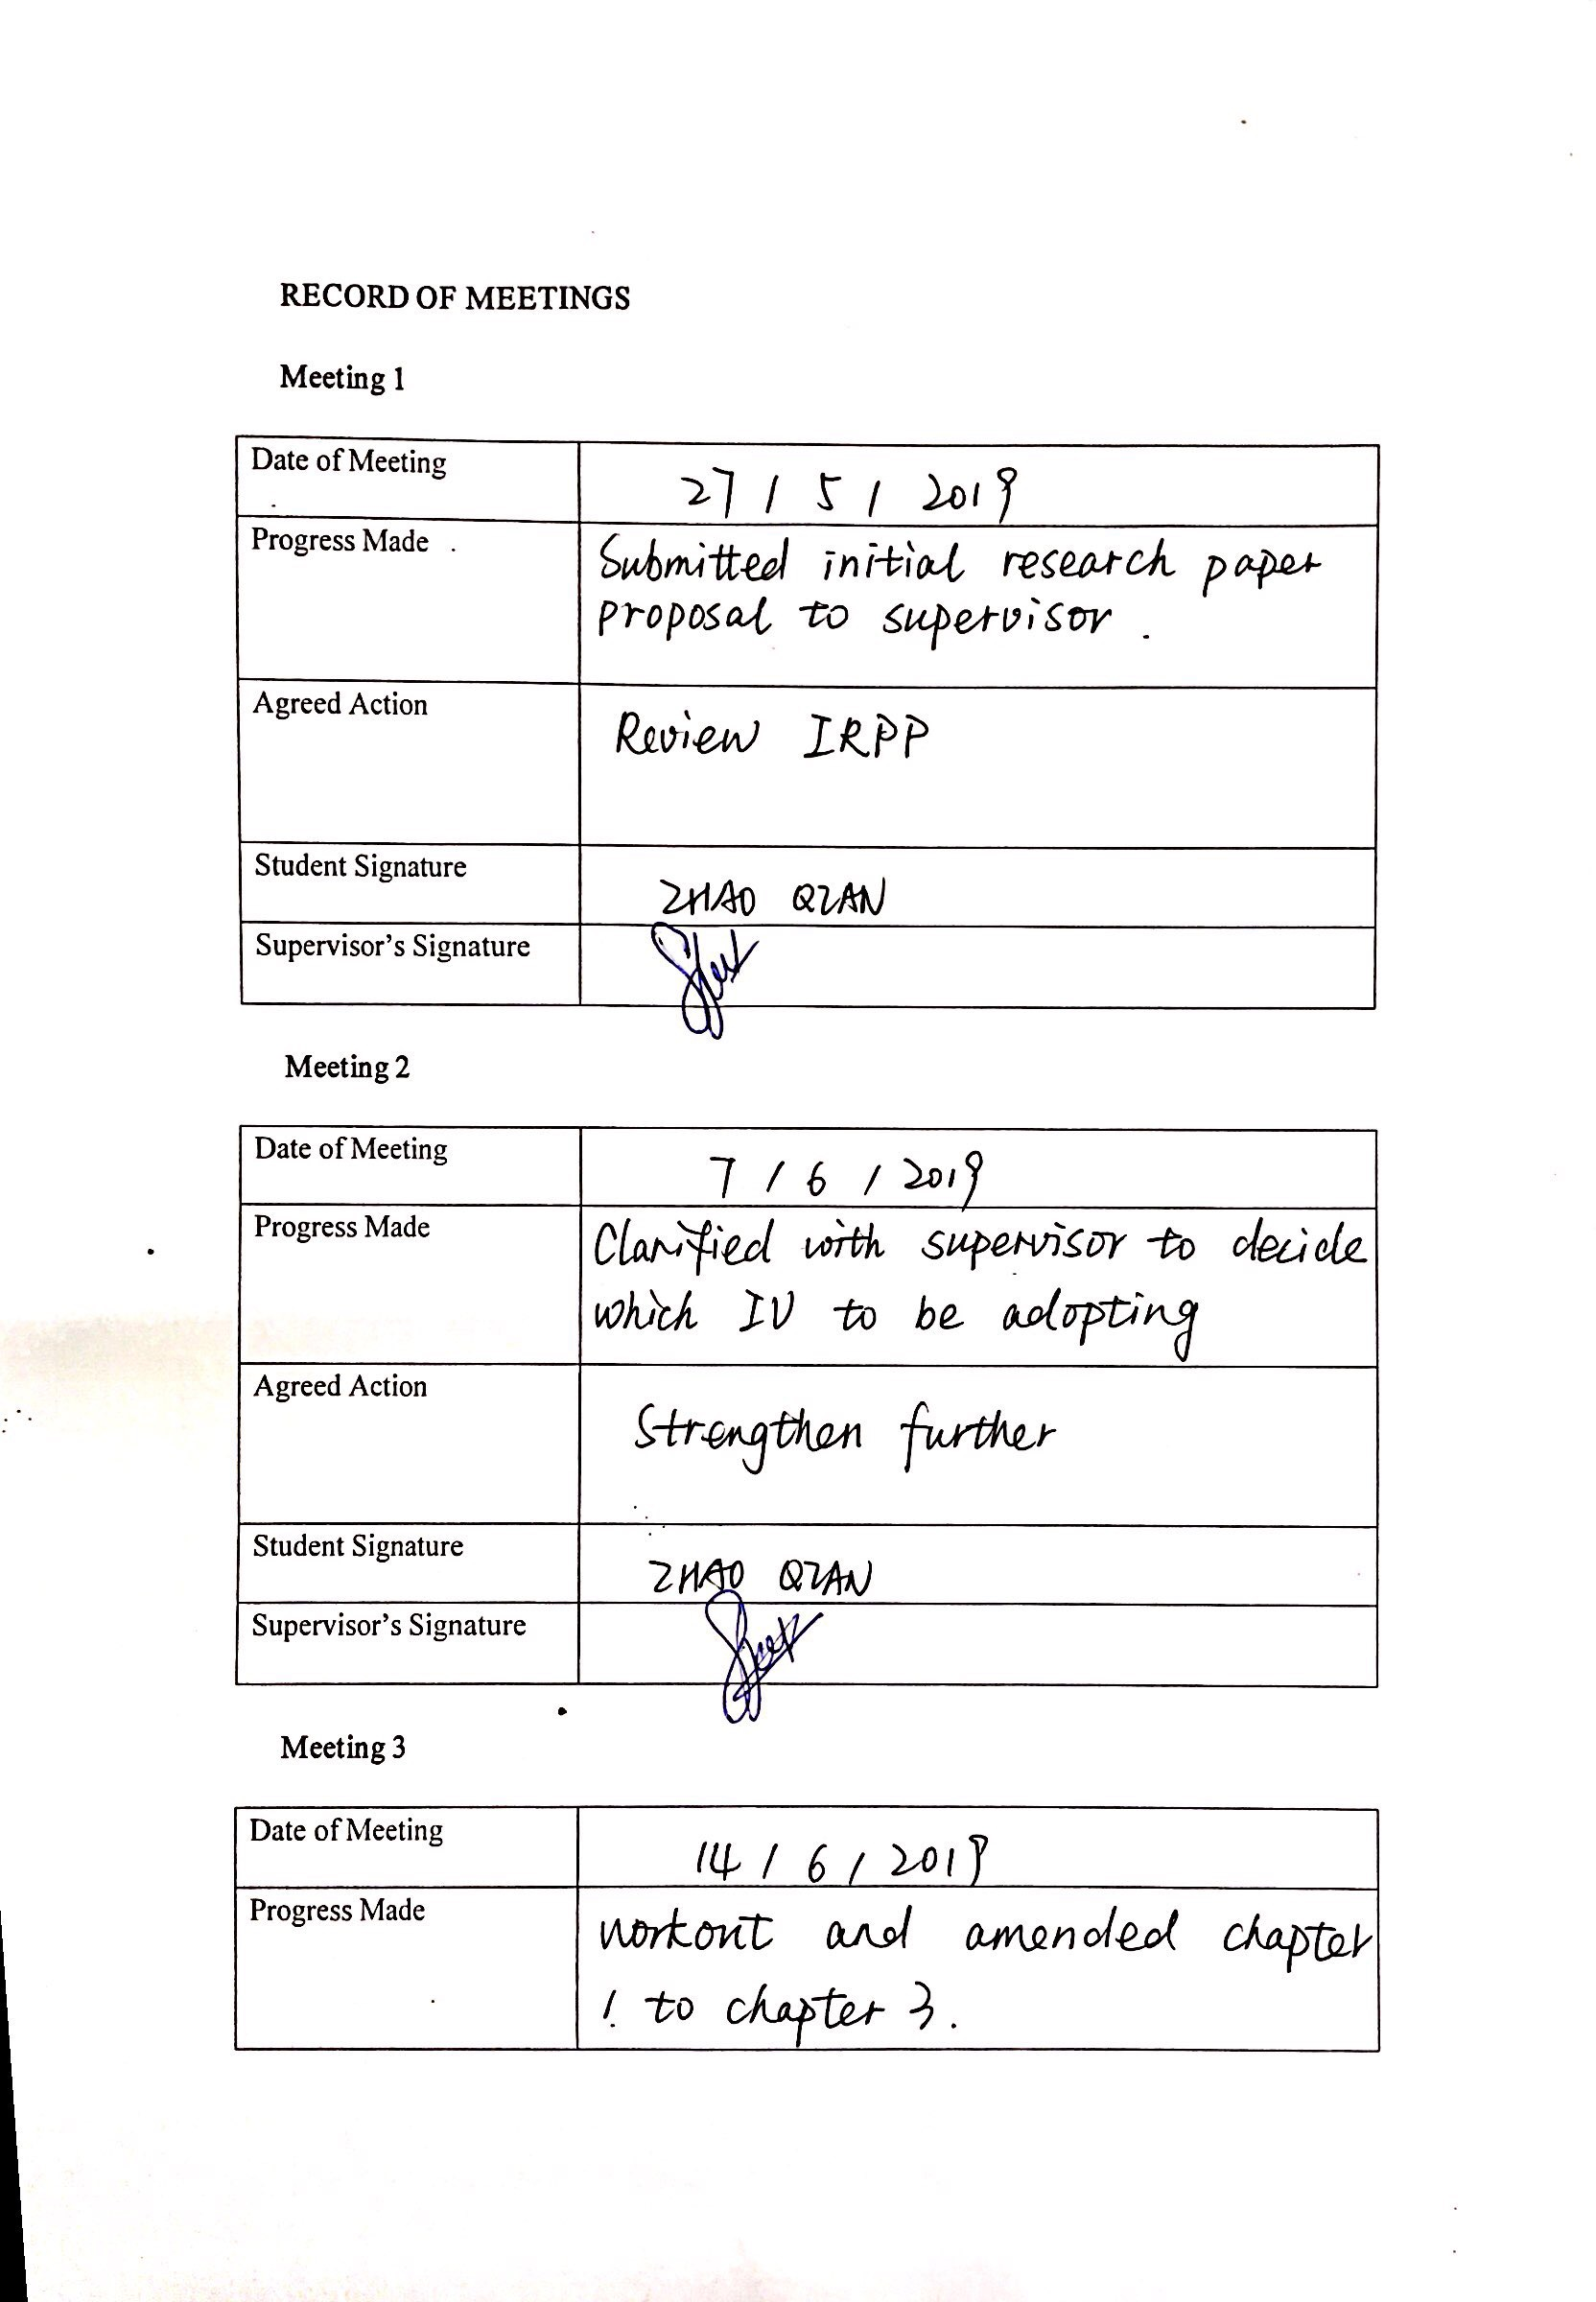 RECORD OF MEETINGS
Meeting 1
Date of Meeting 27 / 5 / 2019
Progress Made Submitted initial research paper
proposal to supervisor.
Agreed Action Review IRPP
Student Signature ZHAO QIAN
Supervisor's Signature
Meeting 2
Date of Meeting 7 / 6 / 2019
Progress Made Clarified with supervisor to decide
which IV to be adopting
Agreed Action Strengthen further
Student Signature ZHAO QIAN
Supervisor's Signature
Meeting 3
Date of Meeting 14 / 6 / 2019
Progress Made workout and amended chapter
1 to chapter 3.